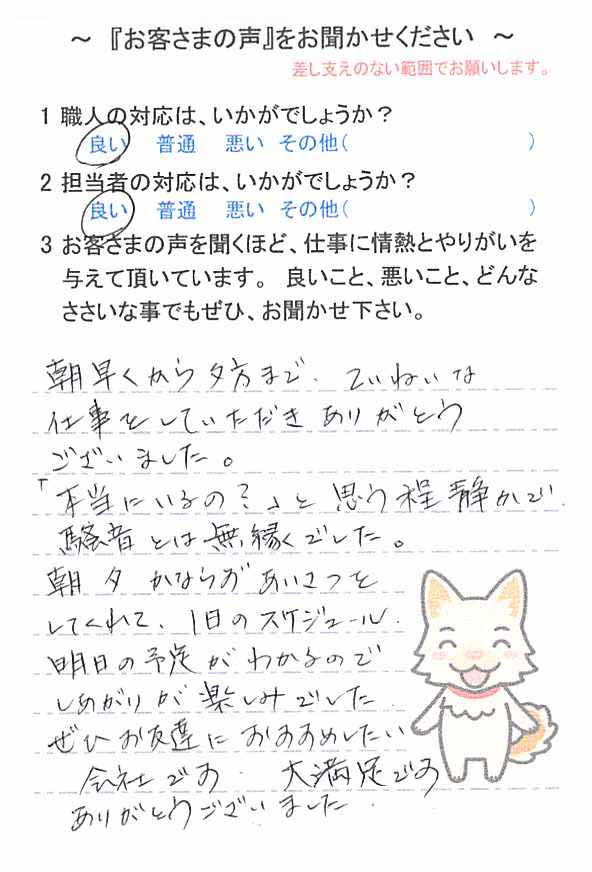 ～ 『お客さまの声』をお聞かせください ～
差し支えのない範囲でお願いします。
1 職人の対応は、いかがでしょうか？
良い 普通 悪い その他( )
2 担当者の対応は、いかがでしょうか？
良い 普通 悪い その他( )
3 お客さまの声を聞くほど、仕事に情熱とやりがいを
与えて頂いています。 良いこと、悪いこと、どんな
ささいな事でもぜひ、お聞かせ下さい。
朝早くから夕方まで、ていねいな
仕事をしていただきありがとう
ございました。
「本当にいるの？」と思う程静かで、
騒音とは無縁くでした。
朝夕かならずあいさつを
してくれて、1日のスケジュール、
明日の予定がわかるので
しあがりが楽しみでした
ぜひお友達におすすめしたい
会社です、 大満足です
ありがとうございました、